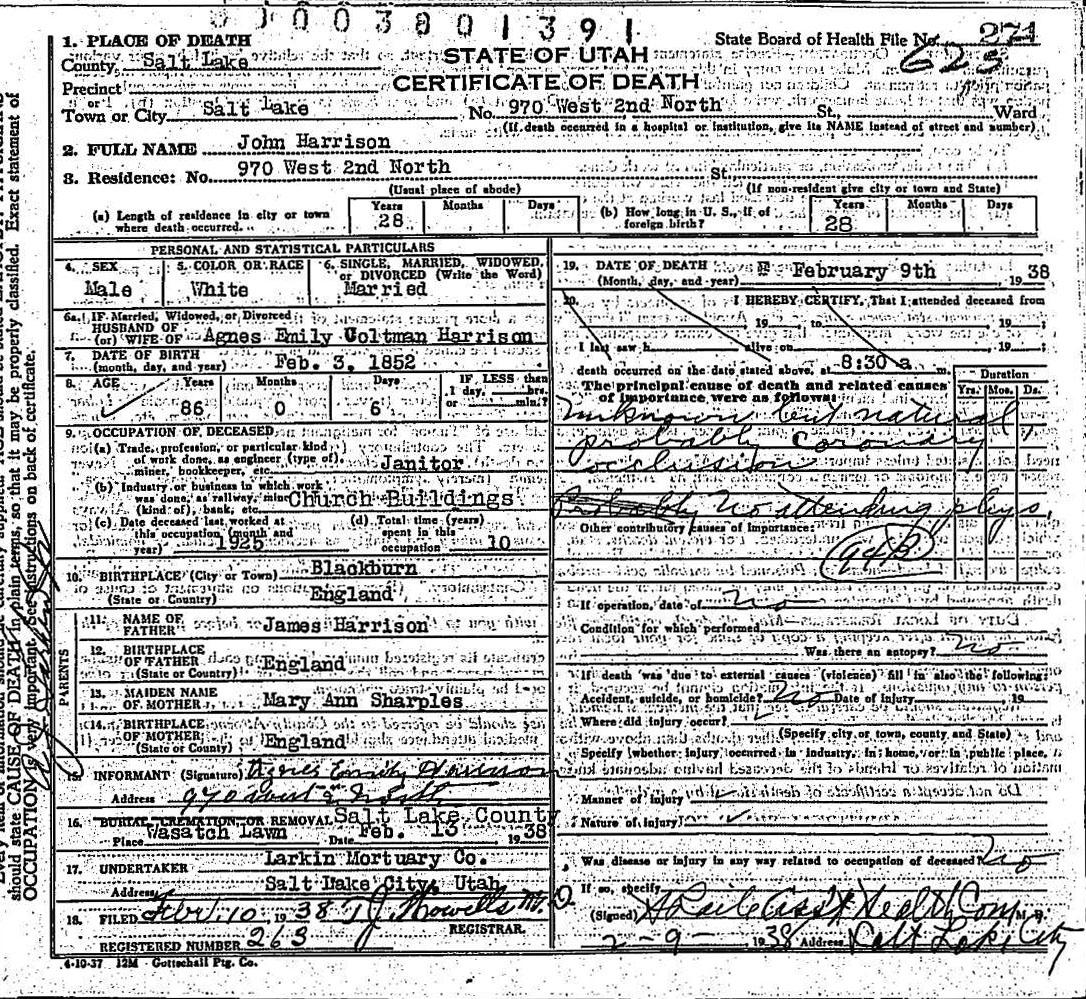 0 0 0 0 3 8 0 1 3 9 1
1. PLACE OF DEATH
County Salt Lake
Precinct
or
Town or City Salt Lake
STATE OF UTAH
CERTIFICATE OF DEATH
State Board of Health File No. 271
625
No. 970 West 2nd North St., Ward
(If death occurred in a hospital or institution, give its NAME instead of street and number)
2. FULL NAME John Harrison
3. Residence: No. 970 West 2nd North St.
(Usual place of abode) (If non-resident give city or town and State)
(a) Length of residence in city or town where death occurred. Years 28 Months Days
(b) How long in U. S., if of foreign birth? Years 28 Months Days
PERSONAL AND STATISTICAL PARTICULARS
4. SEX Male
5. COLOR OR RACE White
6. SINGLE, MARRIED, WIDOWED, or DIVORCED (Write the Word) Married
6a. IF Married, Widowed, or Divorced
HUSBAND OF
(or) WIFE OF Agnes Emily Coltman Harrison
7. DATE OF BIRTH
(month, day, and year) Feb. 3, 1852
8. AGE Years 86 Months 0 Days 6 IF LESS than 1 day, hrs. or min.?
9. OCCUPATION OF DECEASED
(a) Trade, profession, or particular kind
of work done, as engineer (type of),
miner, bookkeeper, etc. Janitor
(b) Industry or business in which work
was done, as railway, mine
(kind of), bank, etc. Church Buildings
(c) Date deceased last worked at
this occupation (month and
year) 1925
(d) Total time (years)
spent in this
occupation 10
10. BIRTHPLACE (City or Town) Blackburn
(State or Country) England
PARENTS
11. NAME OF
FATHER James Harrison
12. BIRTHPLACE
OF FATHER
(State or County) England
13. MAIDEN NAME
OF MOTHER Mary Ann Sharples
14. BIRTHPLACE
OF MOTHER
(State or County) England
15. INFORMANT (Signature) Agnes Emily Harrison
Address 970 West 2 North
16. BURIAL, CREMATION, OR REMOVAL Salt Lake County
Place Wasatch Lawn Date Feb. 13 1938
17. UNDERTAKER Larkin Mortuary Co.
Address Salt Lake City, Utah
18. FILED Feb. 10 1938 T J Howells M. D.
REGISTRAR.
REGISTERED NUMBER 263
4-10-37 12M Gottschall Ptg. Co.
19. DATE OF DEATH
(Month, day, and year) February 9th 1938
20. I HEREBY CERTIFY, That I attended deceased from
19 to 19
I last saw h alive on 19
death occurred on the date stated above, at 8:30 a m.
The principal cause of death and related causes
of importance were as follows:
Duration
Yrs. Mos. Ds.
Unknown but natural
probably coronary
occlusion
Probably No attending phys.
Other contributory causes of importance:
If operation, date of no
Condition for which performed
Was there an autopsy? no
If death was due to external causes (violence) fill in also the following:
Accident, suicide, or homicide? No Date of injury 19
Where did injury occur?
(Specify city or town, county and State)
Specify whether injury occurred in industry, in home, or in public place.
Manner of injury
Nature of injury
Was disease or injury in any way related to occupation of deceased? No
If so, specify
(Signed) Ass't Health Com M. D.
2-9- 1938 Address Salt Lake City
should state CAUSE OF DEATH in plain terms, so that it may be properly classified. Exact statement of
OCCUPATION is very important. See instructions on back of certificate.